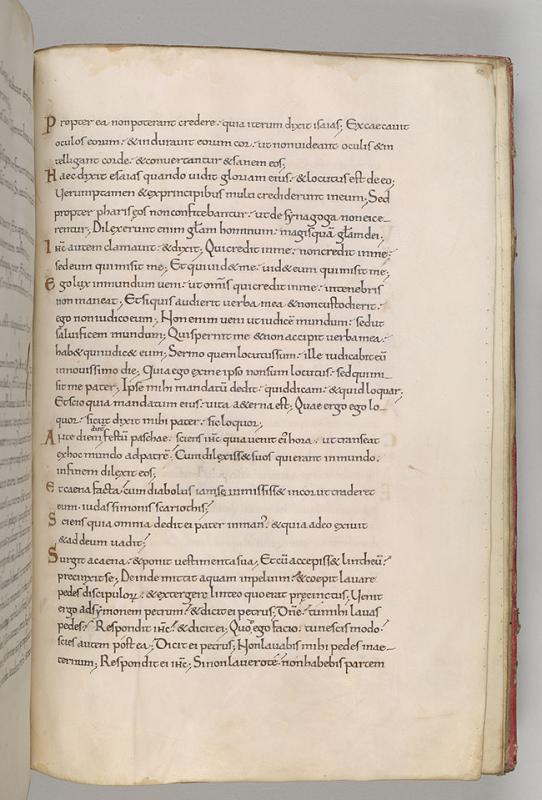 Propter ea non poterant credere. quia iterum dixit isaias; Excaecauit
oculos eorum. & indurauit eorum cor. ut non uideant oculis & in
tellegant corde. & conuertantur & sanem eos;
Haec dixit esaias quando uidit gloriam eius. & locutus est de eo;
Uerumptamen & ex principibus multi crediderunt in eum; Sed
propter phariseos non confitebantur. ut de synagoga non eice
rentur; Dilexerunt enim glam hominum. magis quā glam dei;
Ihc autem clamauit. & dixit; Qui credit in me. non credit in me.
sed eum qui misit me; Et qui uid& me. uid& eum qui misit me;
Ego lux in mundum ueni. ut omis qui credit in me. in tenebris
non maneat; Et si quis audierit uerba mea & non custodierit.
ego non iudico eum; Non enim ueni ut iudicē mundum. sed ut
saluificem mundum; Qui spernit me & non accipit uerba mea.
hab& qui iudic& eum; Sermo quem locutus sum. ille iudicabit eū
in nouissimo die; Quia ego ex me ipso non sum locutus. sed qui mi-
sit me pater; Ipse mihi mandatū dedit. quid dicam. & quid loquar;
Et scio quia mandatum eius. uita aeterna est; Quae ergo ego lo-
quor. sicut dixit mihi pater. sic loquor;
Ante diem festū paschae. sciens ihc quia uenit hora. ut transeat
ex hoc mundo ad patrē. Cum dilexiss& suos qui erant in mundo.
in finem dilexit eos;
Et caena facta. cum diabolus iam se inmisiss& in cor. ut traderet
eum. iudas simonis scariothis;
Sciens quia omnia dedit ei pater in man. & quia a deo exiuit
& ad deum uadit;
Surgit a caena. & ponit uestimenta sua; Et cū accepiss& lintheū.
precinxit se; Deinde mittit aquam in peluim. & coepit lauare
pedes discipulor. & extergere linteo quo erat precinctus; Uenit
ergo ad symonem petrum. & dicit ei petrus; Dne. tu mihi lauas
pedes; Respondit ihc. & dicit ei; Quod ego facio. tu nescis modo.
scies autem post ea; Dicit ei petrus; Non lauabis mihi pedes in ae-
ternum; Respondit ei ihc; Si non lauero te. non habebis partem